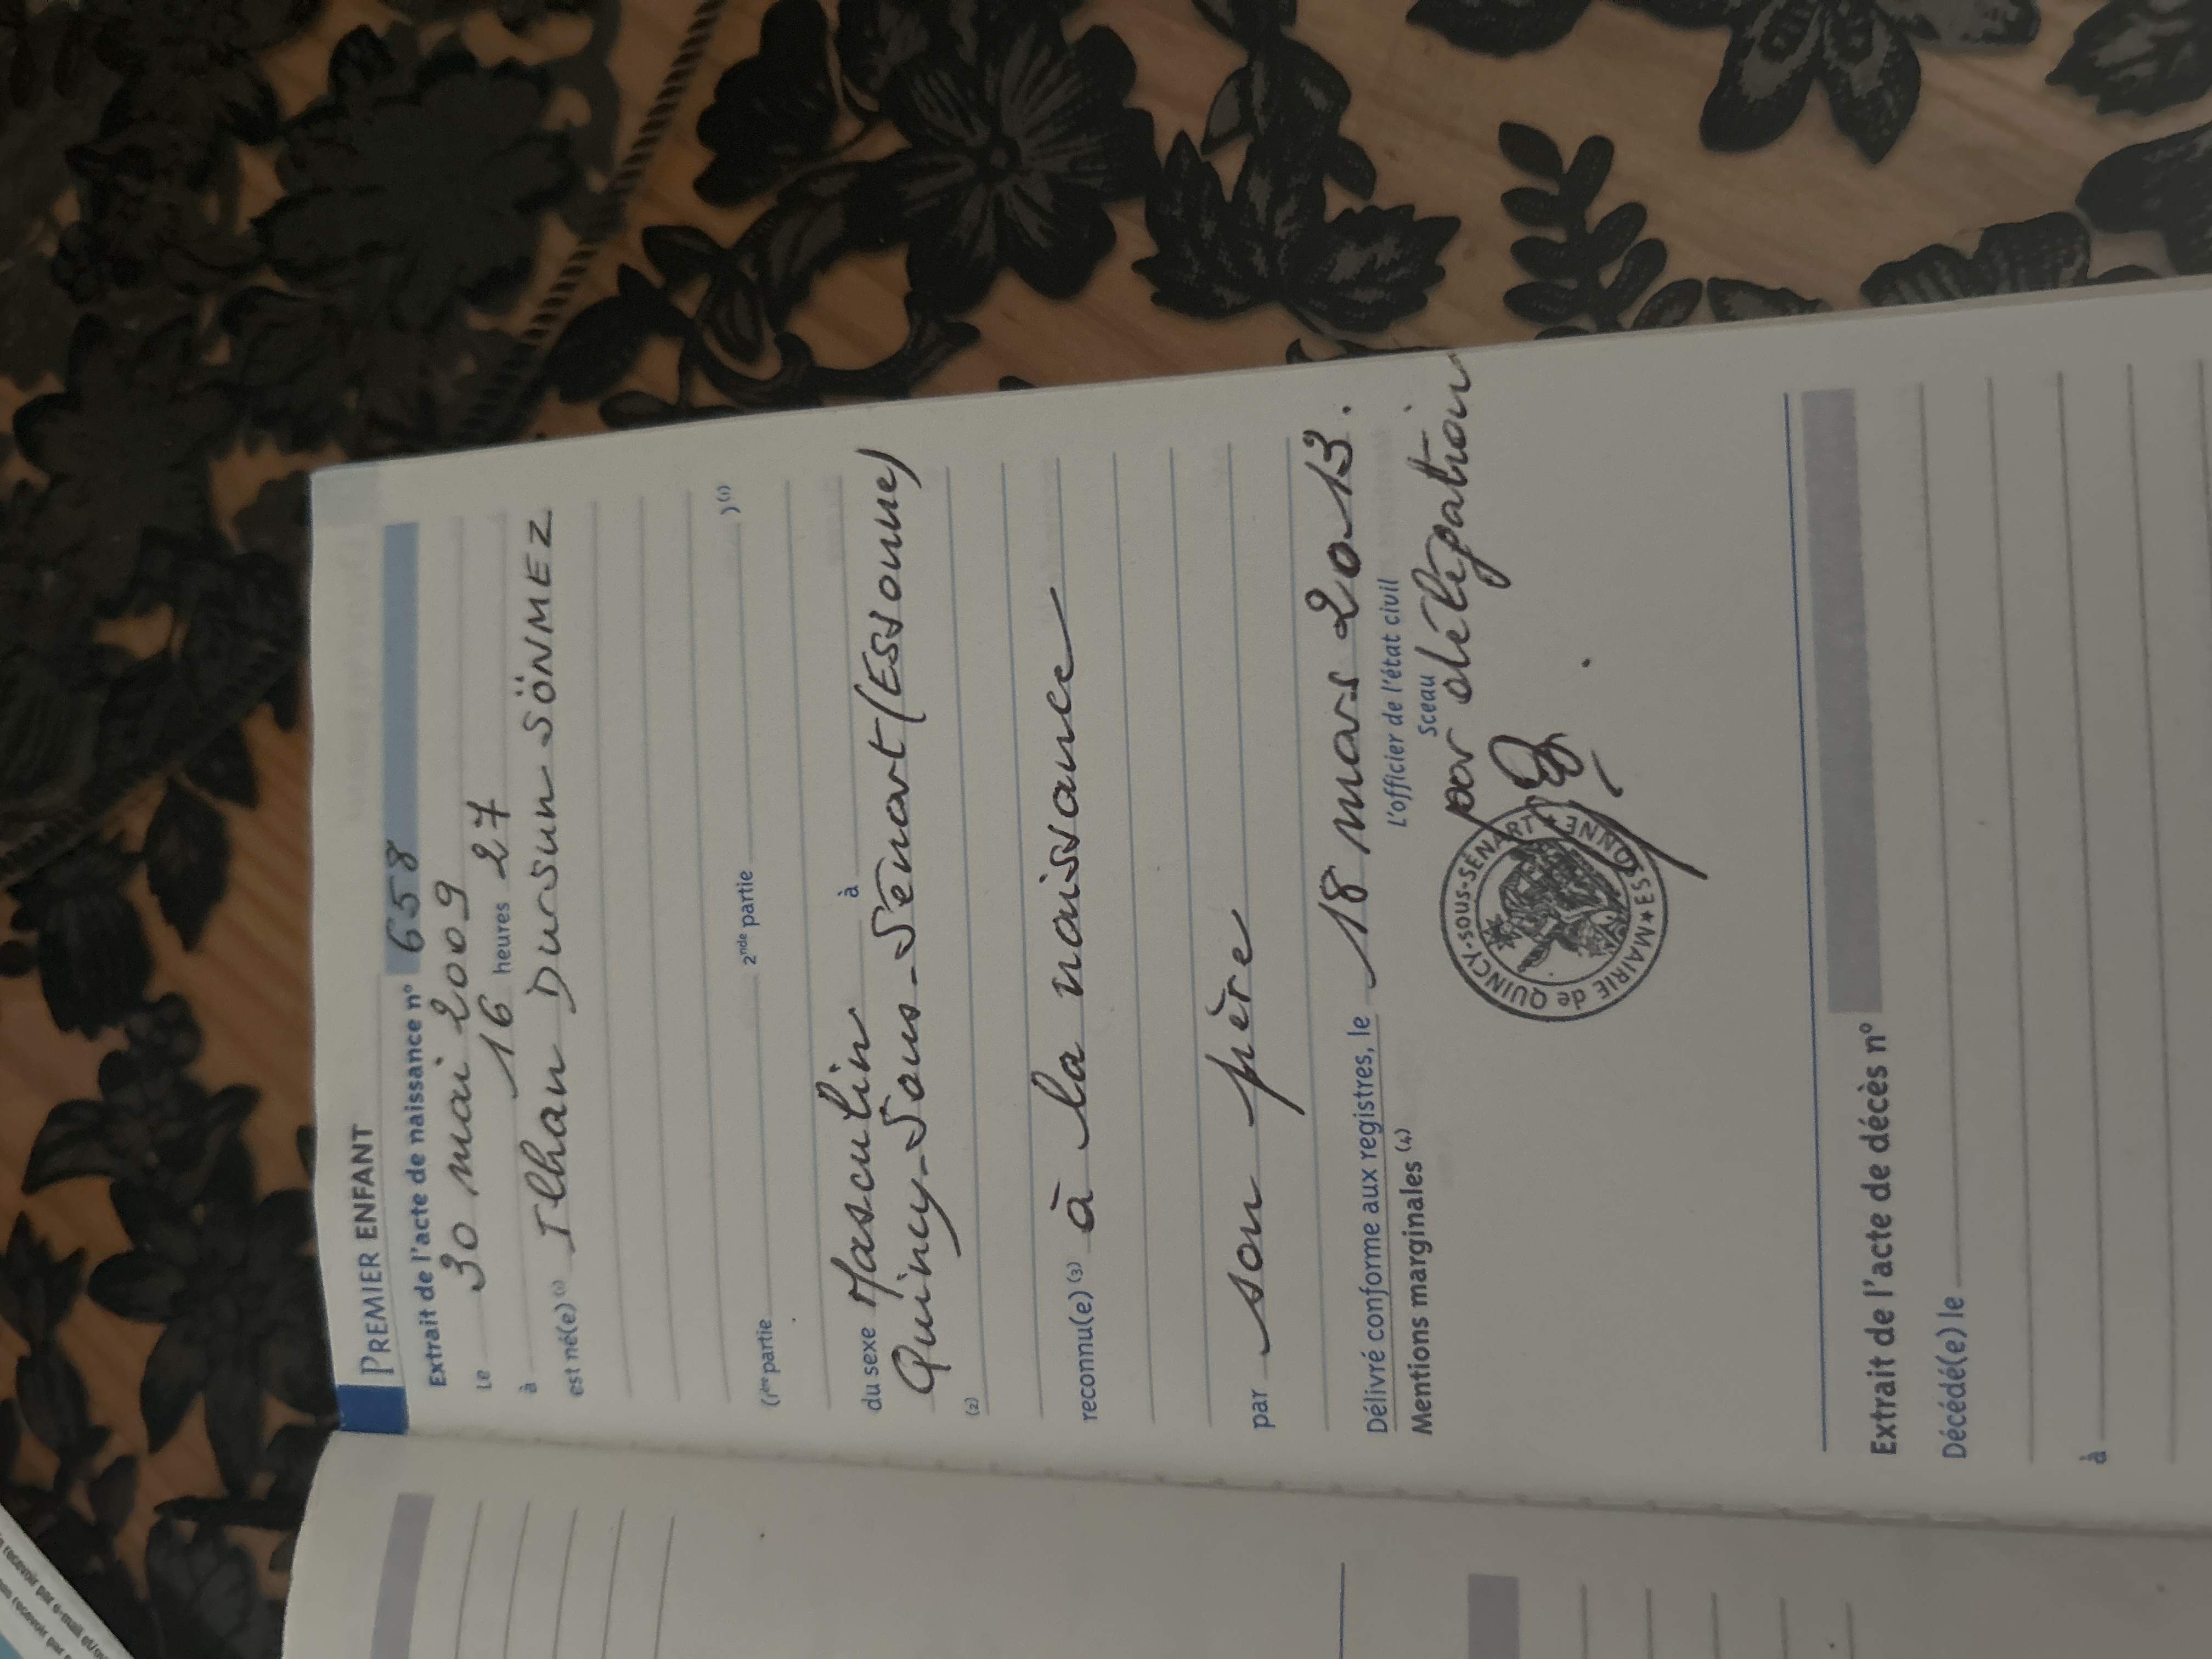 PREMIER ENFANT
Extrait de l'acte de naissance n° 658
Le 30 mai 2009
à 16 heures 27
est né(e) (1) Ilhan Dursun SÖNMEZ
(1ère partie 2nde partie )(1)
du sexe Masculin à
Quincy-Sous-Sénart (Essonne)
(2)
reconnu(e) (3) à la naissance
par son père
Délivré conforme aux registres, le 18 mars 2013.
Mentions marginales (4)
L'officier de l'état civil
Sceau
par délégation
MAIRIE de QUINCY-SOUS-SÉNART ★ ESSONNE ★
Extrait de l'acte de décès n°
Décédé(e) le
à